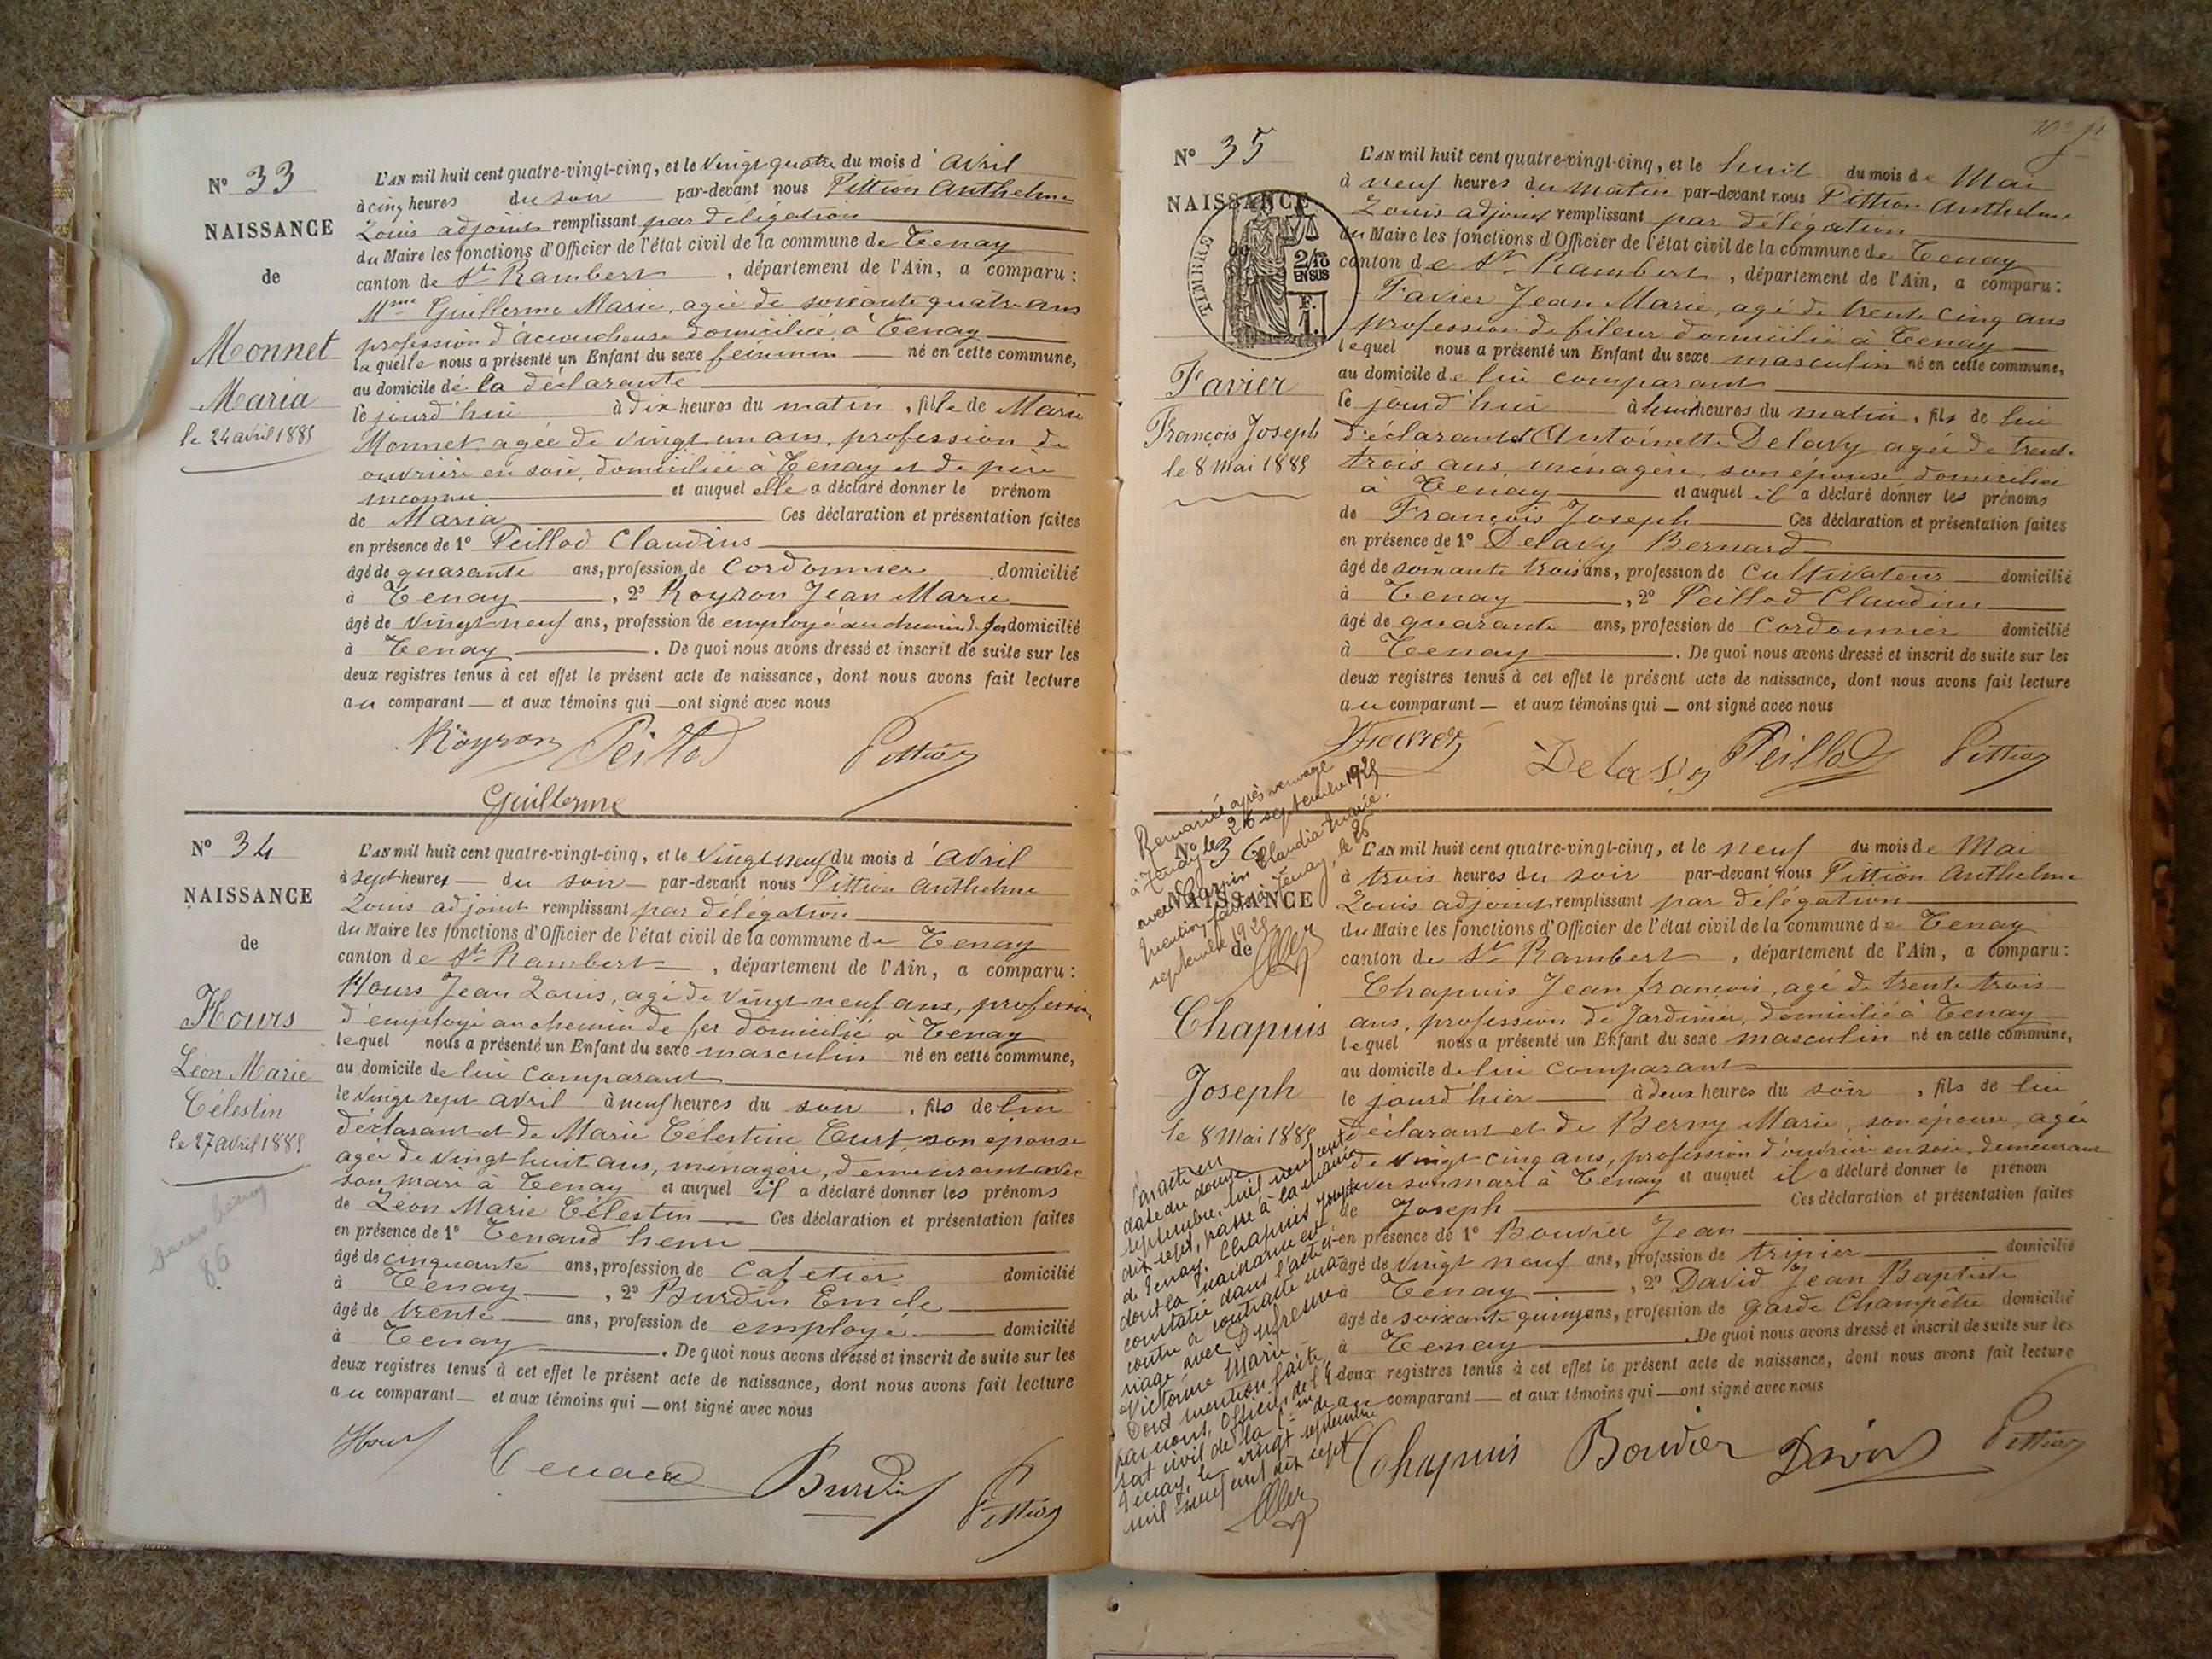 N° 33
NAISSANCE
de
Monnet
Maria
le 24 avril 1885
L'AN mil huit cent quatre-vingt-cinq, et le vingt quatre du mois d'avril
à cinq heures du soir par-devant nous Pittion Anthelme
Louis adjoint remplissant par délégation
du Maire les fonctions d'Officier de l'état civil de la commune de Tenay
canton de St Rambert, département de l'Ain, a comparu :
Mme Guillerme Marie, agée de soixante quatre ans
profession d'accoucheuse domiciliée à Tenay
laquelle nous a présenté un Enfant du sexe féminin né en cette commune,
au domicile de la déclarante
le jourd'hui à dix heures du matin, fille de Marie
Monnet agée de vingt un ans, profession de
ouvrière en soie, domiciliée à Tenay et de père
inconnu et auquel elle a déclaré donner le prénom
de Maria Ces déclaration et présentation faites
en présence de 1° Peillod Claudius
âgé de quarante ans, profession de Cordonnier domicilié
à Tenay, 2° Royson Jean Marie
âgé de vingt neuf ans, profession de employé au chemin d. fer domicilié
à Tenay. De quoi nous avons dressé et inscrit de suite sur les
deux registres tenus à cet effet le présent acte de naissance, dont nous avons fait lecture
au comparant et aux témoins qui ont signé avec nous
Royson Peillod Pittion
Guillerme
N° 34
NAISSANCE
de
Hours
Léon Marie
Célestin
le 27 avril 1885
86
L'AN mil huit cent quatre-vingt-cinq, et le vingt neuf du mois d'avril
à sept heures du soir par-devant nous Pittion Anthelme
Louis adjoint remplissant par délégation
du Maire les fonctions d'Officier de l'état civil de la commune de Tenay
canton de St Rambert, département de l'Ain, a comparu :
Hours Jean Louis, agé de vingt neuf ans, profession
d'employé au chemin de fer domicilié à Tenay
lequel nous a présenté un Enfant du sexe masculin né en cette commune,
au domicile de lui comparant
le vingt sept avril à neuf heures du soir, fils de lui
déclarant et de Marie Célestine Curt, son épouse
agée de vingt huit ans, ménagère, demeurant avec
son mari à Tenay et auquel il a déclaré donner les prénoms
de Léon Marie Célestin Ces déclaration et présentation faites
en présence de 1° Tenaud henri
âgé de cinquante ans, profession de Cafetier domicilié
à Tenay, 2° Burdin Emile
âgé de trente ans, profession de employé domicilié
à Tenay. De quoi nous avons dressé et inscrit de suite sur les
deux registres tenus à cet effet le présent acte de naissance, dont nous avons fait lecture
au comparant et aux témoins qui ont signé avec nous
Hours Tenaud Burdin Pittion
N° 35
NAISSANCE
de
TIMBRE
2/10
EN SUS
F.
1.
Favier
François Joseph
le 8 Mai 1885
L'AN mil huit cent quatre-vingt-cinq, et le huit du mois de Mai
à neuf heures du matin par-devant nous Pittion Anthelme
Louis adjoint remplissant par délégation
du Maire les fonctions d'Officier de l'état civil de la commune de Tenay
canton de St Rambert, département de l'Ain, a comparu :
Favier Jean Marie, agé de trente cinq ans
profession de fileur domicilié à Tenay
lequel nous a présenté un Enfant du sexe masculin né en cette commune,
au domicile de lui comparant
le jourd'hui à huit heures du matin, fils de lui
déclarant et Antoinette Delavy, agée de trente
trois ans, ménagère, son épouse domiciliée
à Tenay et auquel il a déclaré donner les prénoms
de François Joseph Ces déclaration et présentation faites
en présence de 1° Delavy Bernard
âgé de soixante trois ans, profession de Cultivateur domicilié
à Tenay, 2° Peillod Claudius
âgé de quarante ans, profession de Cordonnier domicilié
à Tenay. De quoi nous avons dressé et inscrit de suite sur les
deux registres tenus à cet effet le présent acte de naissance, dont nous avons fait lecture
au comparant et aux témoins qui ont signé avec nous
Favier Delavy Peillod Pittion
Remarié après veuvage
à Tenay le 26 septembre 1925
avec Carpin Claudia Marie.
Mention faite à Tenay, le 26
septembre 1925.
N° 36
NAISSANCE
de
Chapuis
Joseph
le 8 Mai 1885
L'AN mil huit cent quatre-vingt-cinq, et le neuf du mois de Mai
à trois heures du soir par-devant nous Pittion Anthelme
Louis adjoint remplissant par délégation
du Maire les fonctions d'Officier de l'état civil de la commune de Tenay
canton de St Rambert, département de l'Ain, a comparu :
Chapuis Jean françois, agé de trente trois
ans, profession de Jardinier, domicilié à Tenay
lequel nous a présenté un Enfant du sexe masculin né en cette commune,
au domicile de lui comparant
le jourd'hier à deux heures du soir, fils de lui
déclarant et de Berny Marie, son épouse, agée
de vingt cinq ans, profession d'ouvrière en soie, demeurant
avec son mari à Tenay et auquel il a déclaré donner le prénom
de Joseph Ces déclaration et présentation faites
en présence de 1° Bouvier Jean
âgé de vingt neuf ans, profession de tripier domicilié
à Tenay, 2° David Jean Baptiste
âgé de soixante quinze ans, profession de garde Champêtre domicilié
à Tenay. De quoi nous avons dressé et inscrit de suite sur les
deux registres tenus à cet effet le présent acte de naissance, dont nous avons fait lecture
au comparant et aux témoins qui ont signé avec nous
Chapuis Bouvier David Pittion
Par acte en
date du douze
septembre, mil neuf cent
dix sept, passé à la mairie
de Tenay, Chapuis Joseph
dont la naissance est
constatée dans l'acte ci-
contre a contracté ma-
riage avec Dufresne
Victorine Marie
Dont mention faite
par nous, Officier de l'é-
tat civil de la Cne de
Tenay, le vingt septembre
mil neuf cent dix sept